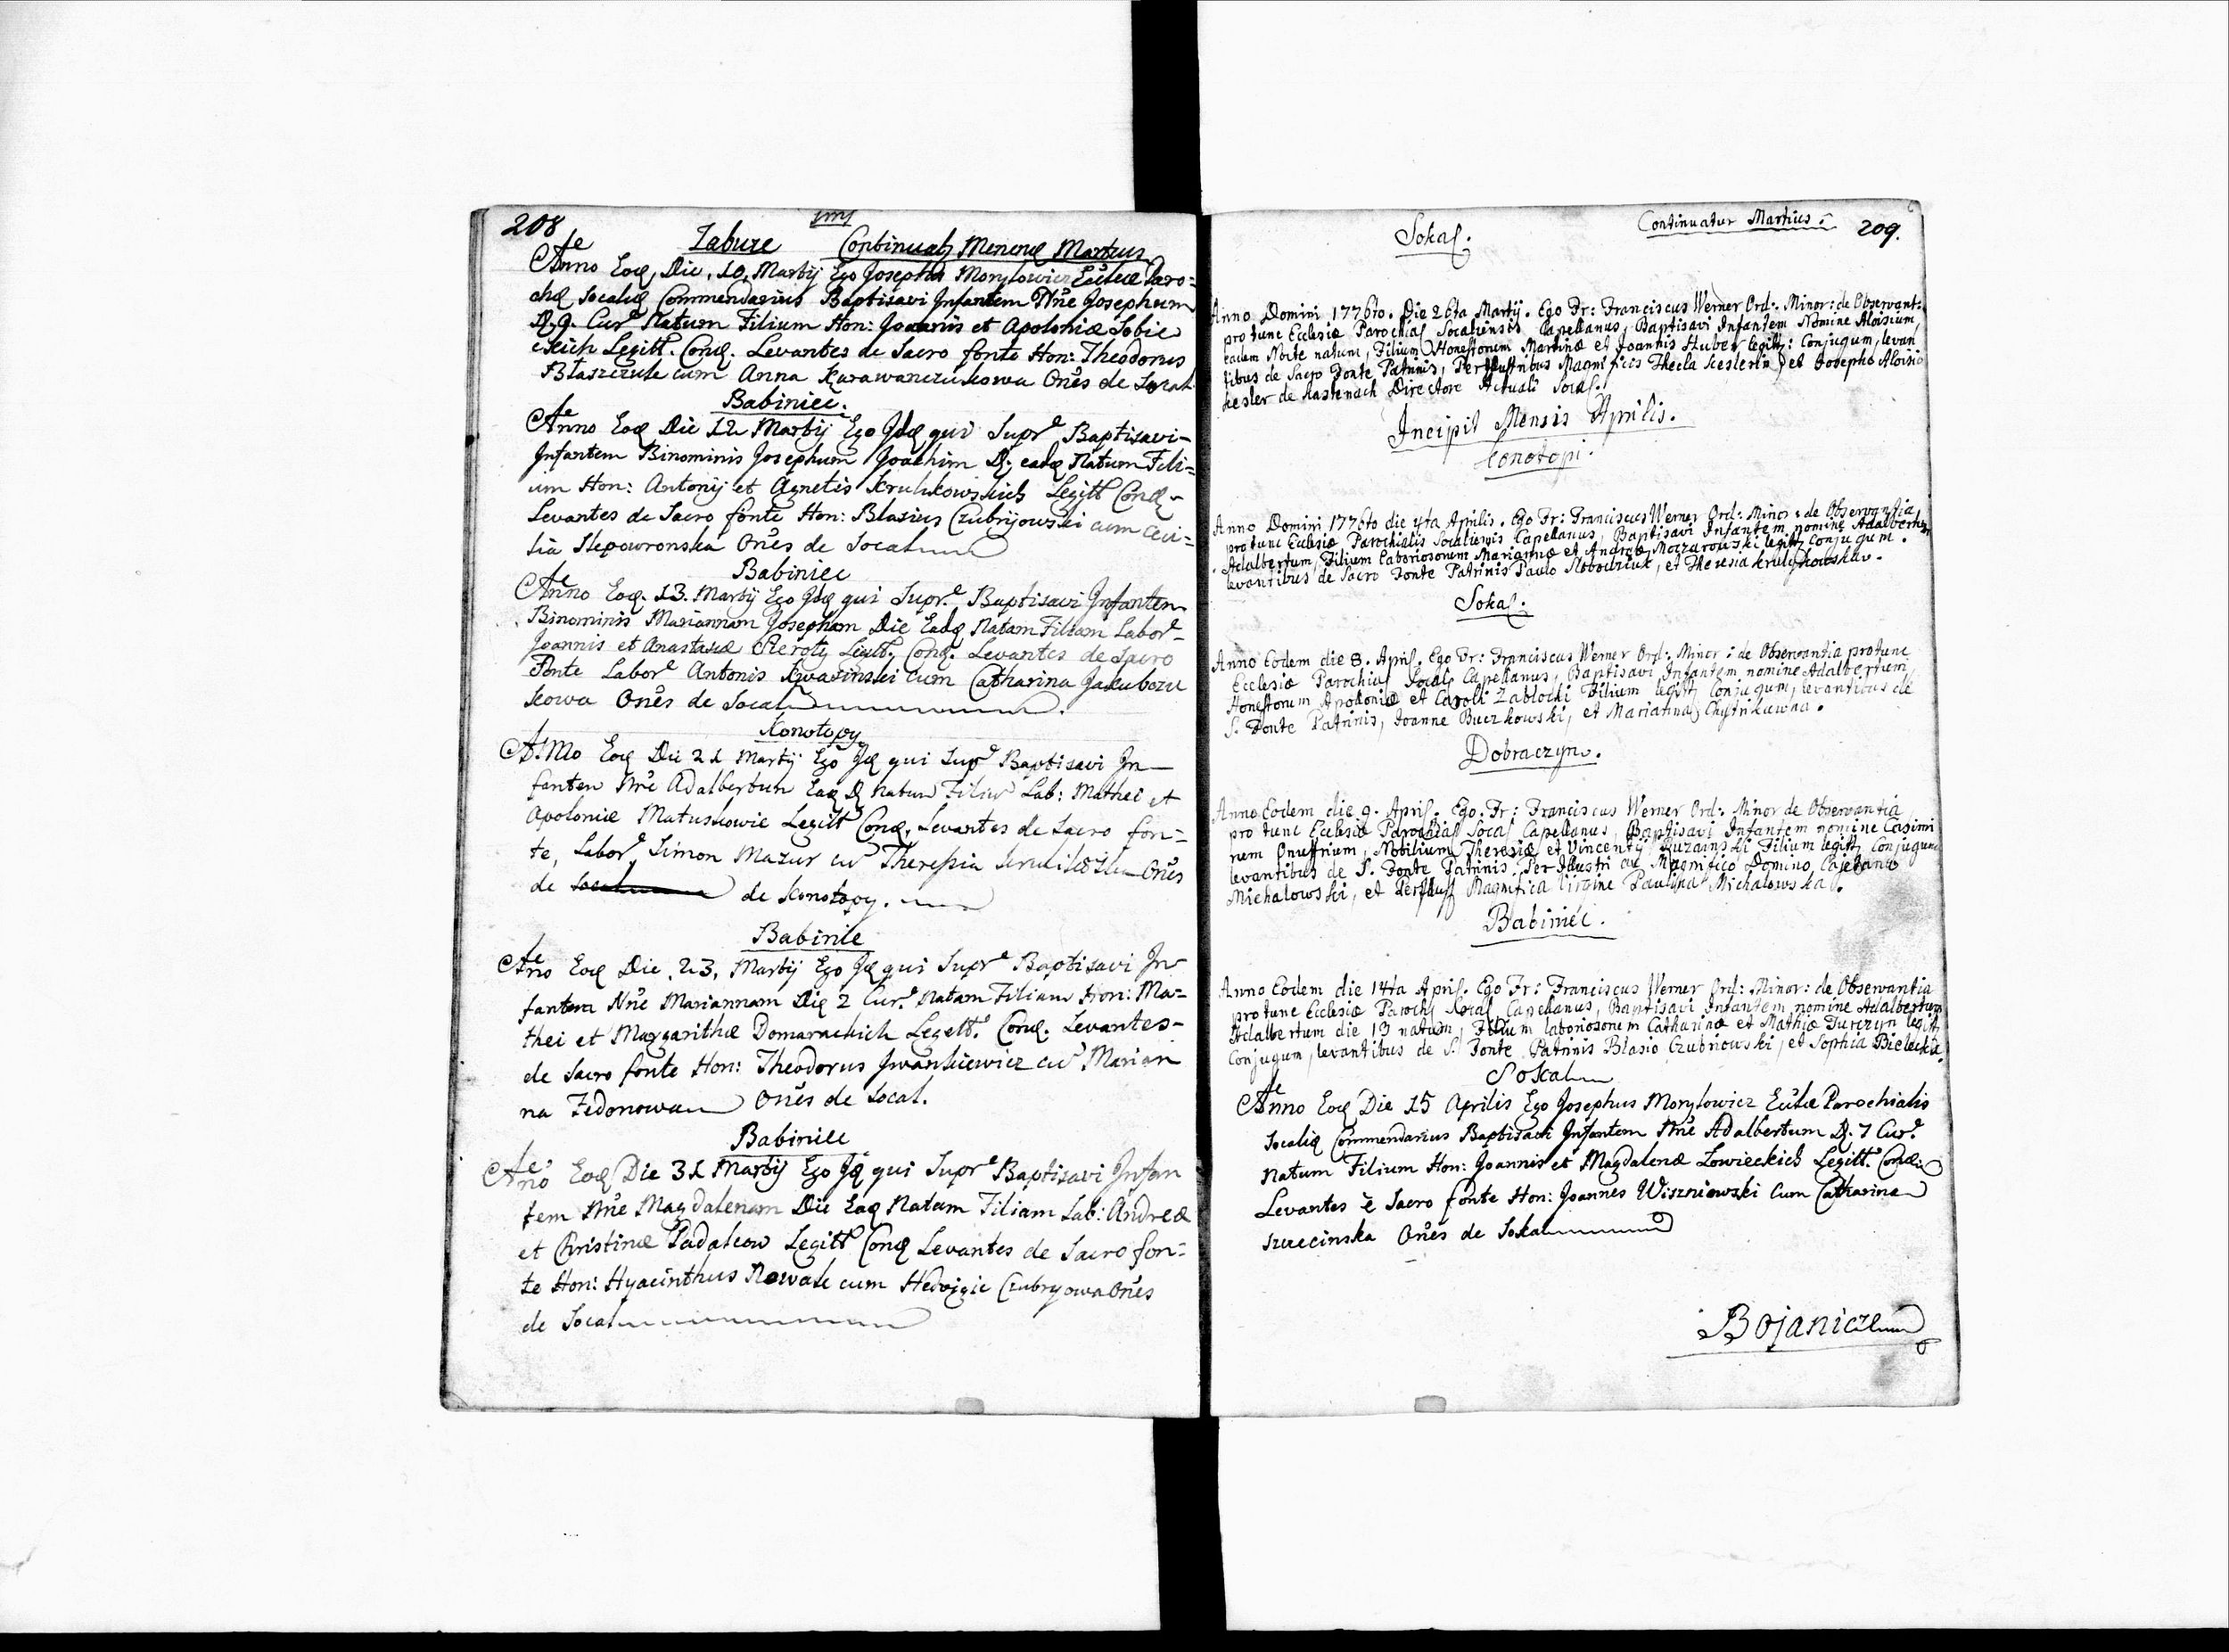 208
Zabuze Continuatz Mencuę Martius
Anno Eoq, Die, 10, Martij Ego Josephus Morylowicz Eccliae Paro=
chq Socaliq Commendarius Baptisavi Infantem Nne Josephum
D. 9. Cur. Natum Filium Hon: Joannis et Apoloniæ Sobie
skich Legitt. Conq. Levantes de Sacro fonte Hon: Theodorus
Błaszczuk cum Anna Karawanczukowa Ones de Socal
Babiniec.
Anno Eoq Die 12 Martij Ego Idq qui Supr Baptisavi-
Infantem Binominis Josephum Joachim D. eadq Natum Fili=
um Hon: Antonij et Agnetis Krulikowskich Legitt Conq
Levantes de Sacro fonte Hon: Blasius Czubryjowski cum Ceci=
lia Slepowronska Ones de Socal
Babiniec
Anno Eoq. 13. Martij Ego Idq qui Supr. Baptisavi Infantem
Binominis Mariannam Josepham Die Eadq Natam Filiam Labor
Joannis et Anastasiæ Legitt. Conq. Levantes de Sacro
Fonte Labor Antonis Kwasinski cum Catharina Jakubczu
kowa Ones de Socal
Konotopy
Anno Eoq Die 21 Martij Ego Iq qui Supr Baptisavi In
fantem Nne Adalbertum Eaq D Natum Filiu Lab: Mathei et
Apoloniæ Matuskowie Legitt Conq. Levantes de Sacro fon=
te, Labor Simon Mazur cu Theressia Ones
de Socal de Konotopy.
Babinie
Anno Eoq Die, 23, Martij Ego Iq qui Supr Baptisavi In
fantem Nne Mariannam Diq 2 Cur. Natam Filiam Hon: Ma=
thei et Margarithæ Domarackich Legitt. Conq. Levantes-
de Sacro fonte Hon: Theodorus Iwankiewicz cu Marian
na Fedonowa Ones de Socal.
Babiniec
Anno Eoq Die 31 Martij Ego Iq qui Supr Baptisavi Infan
tem Nne Magdalenam Die Eaq Natam Filiam Lab: Andreæ
et Christinæ Padalcow Legitt Conq Levantes de Sacro fon=
te Hon: Hyacinthus Nowak cum Hedvigie Czubryowa Ones
de Socal
Sokal. Continuatur Martius. 209.
Anno Domini 1776to. Die 26ta Martij. Ego Fr: Franciscus Werner Ord: Minor: de Observant:
pro tunc Eclesiæ Parochial Socaliensis Capellanus, Baptisavi Infantem Nomine Aloisium,
eadem Nocte natum, Filium Honestorum Martinæ et Joannis Huber legitt: Conjugum, levan
tibus de Sacro Fonte Patrinis, Perillustribus Magnificis Thecla Keslerin, et Josepho Aloisio
Kesler de Kastenach Directore Actuali Socal.
Incipit Mensis Aprilis.
Conotopi.
Anno Domini 1776to die 4ta Aprilis. Ego Fr: Franciscus Werner Ord: Minor: de Observantia
pro tunc Eclesiæ Parochialis Socaliensis Capellanus, Baptisavi Infantem nomine Adalbertum
Adalbertum, Filium laboriosorum Mariannæ et Andreæ Moczarowski legitt Conjugum.
levantibus de Sacro Fonte Patrinis Paulo Slobodziuk, et Theresia Krulykowska.
Sokal.
Anno Eodem die 8. April. Ego Fr: Franciscus Werner Ord: Minor: de Observantia pro tunc
Ecclesiæ Parochial Socal Capellanus, Baptisavi Infantem nomine Adalbertum,
Honestorum Apoloniæ et Caroli Zablocki Filium legitt Conjugum, levantibus de
S. Fonte Patrinis, Joanne Buczkowski, et Marianna Chytrikuwna.
Dobraczyn.
Anno Eodem die 9. April. Ego Fr: Franciscus Werner Ord: Minor de Observantia
pro tunc Eclesiæ Parochial Socal Capellanus, Baptisavi Infantem nomine Casimi
rum Onufrium, Nobilium Theresiæ et Vincentij Filium legitt Conjugum
levantibus de S. Fonte Patrinis. Per Illustri ac Magnifico Domino Cajetano
Michalowski, et Perillust Magnifica Virgine Paulina Michalowska.
Babiniec.
Anno Eodem die 14ta April. Ego Fr: Franciscus Werner Ord: Minor: de Observantia
pro tunc Eclesiæ Paroch Socal Capellanus, Baptisavi Infantem nomine Adalbertum
Adalbertum die 13 natum, Filium laboriosorum Catharinæ et Mathiæ Turczyn legitt
Conjugum, levantibus de S. Fonte Patrinis Blasio Czubriowski, et Sophia Bielecka.
Sokal
Anno Eoq Die 15 Aprilis Ego Josephus Morylowicz Ecclæ Parochialis
Socaliq Commendarius Baptisavi Infantem Nne Adalbertum D. 7 Cur.
Natum Filium Hon: Joannis et Magdalenæ Lowieckich Legitt. Conq.
Levantes è Sacro fonte Hon: Joannes Wiszniowski Cum Catharina
Szczecinska Ones de Sokal
Bojanicze